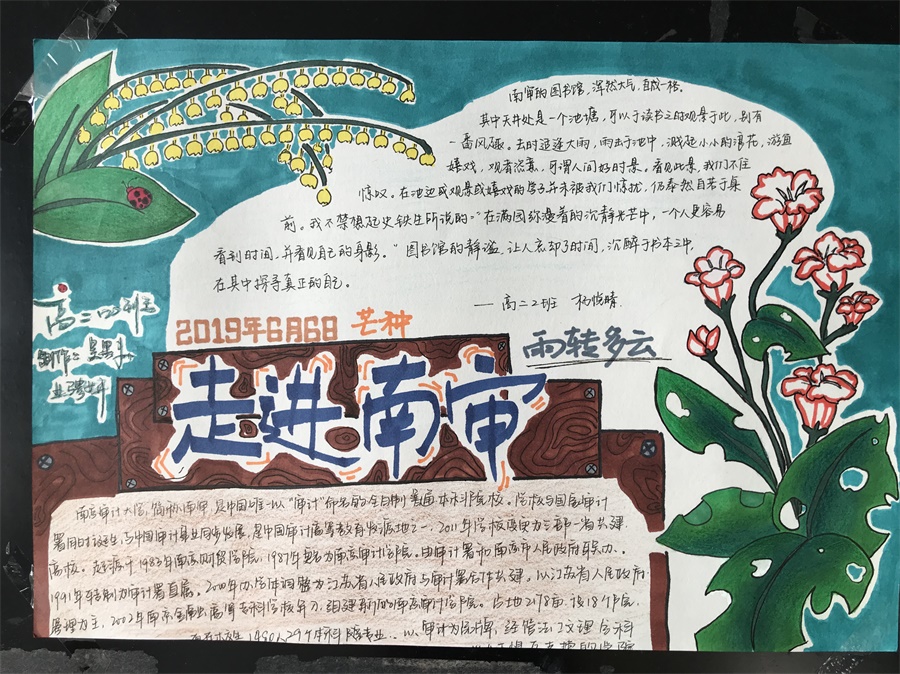 南审的图书馆，浑然大气，自成一格。
其中天井处是一个池塘，可以于读书之时观景于此，别有
一番风趣。去时逗逢大雨，雨击于池中，溅起小小的浪花，游鱼
嬉戏，观者惬意，可谓人间好时景。看见此景，我们不住
惊叹。在池边或观景或嬉戏的学子并未被我们惊扰，仍泰然自若于桌
前。我不禁想起史铁生所说的：“在满园弥漫着的沉静光芒中，一个人更容易
看到时间，并看见自己的身影。”图书馆的静谧，让人忘却了时间，沉醉于书本之中，
在其中探寻真正的自己。
—— 高二2班 杨悦晴
高二
制作：
2019年6月6日 芒种
雨转多云
走进南审
南京审计大学，简称南审，是中国唯一以“审计”命名的全日制普通本科院校。学校与国家审计
署同时诞生，与中国审计事业同步发展，是中国审计高等教育发源地之一。2011年学校成为三部一省共建
高校。起源于1983年南京财贸学院，1987年更名为南京审计学院。由审计署和南京市人民政府联办。
1991年转制为审计署直属。2000年办学体制调整为江苏省人民政府与审计署合作共建，以江苏省人民政府
管理为主，2002年南京金融高等专科学校并入，组建新的南京审计学院。占地2178亩，设18个学院，
以审计为品牌，经管法工文理